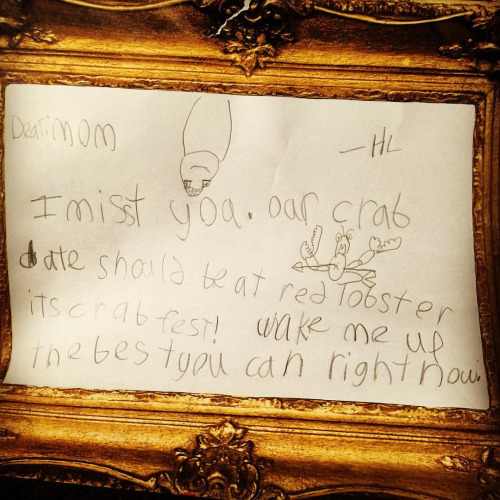 Dear: mom
– HL
I misst yoa. oar crab
date should be at red lobster
its crab fest! wake me up
the best you can right now.